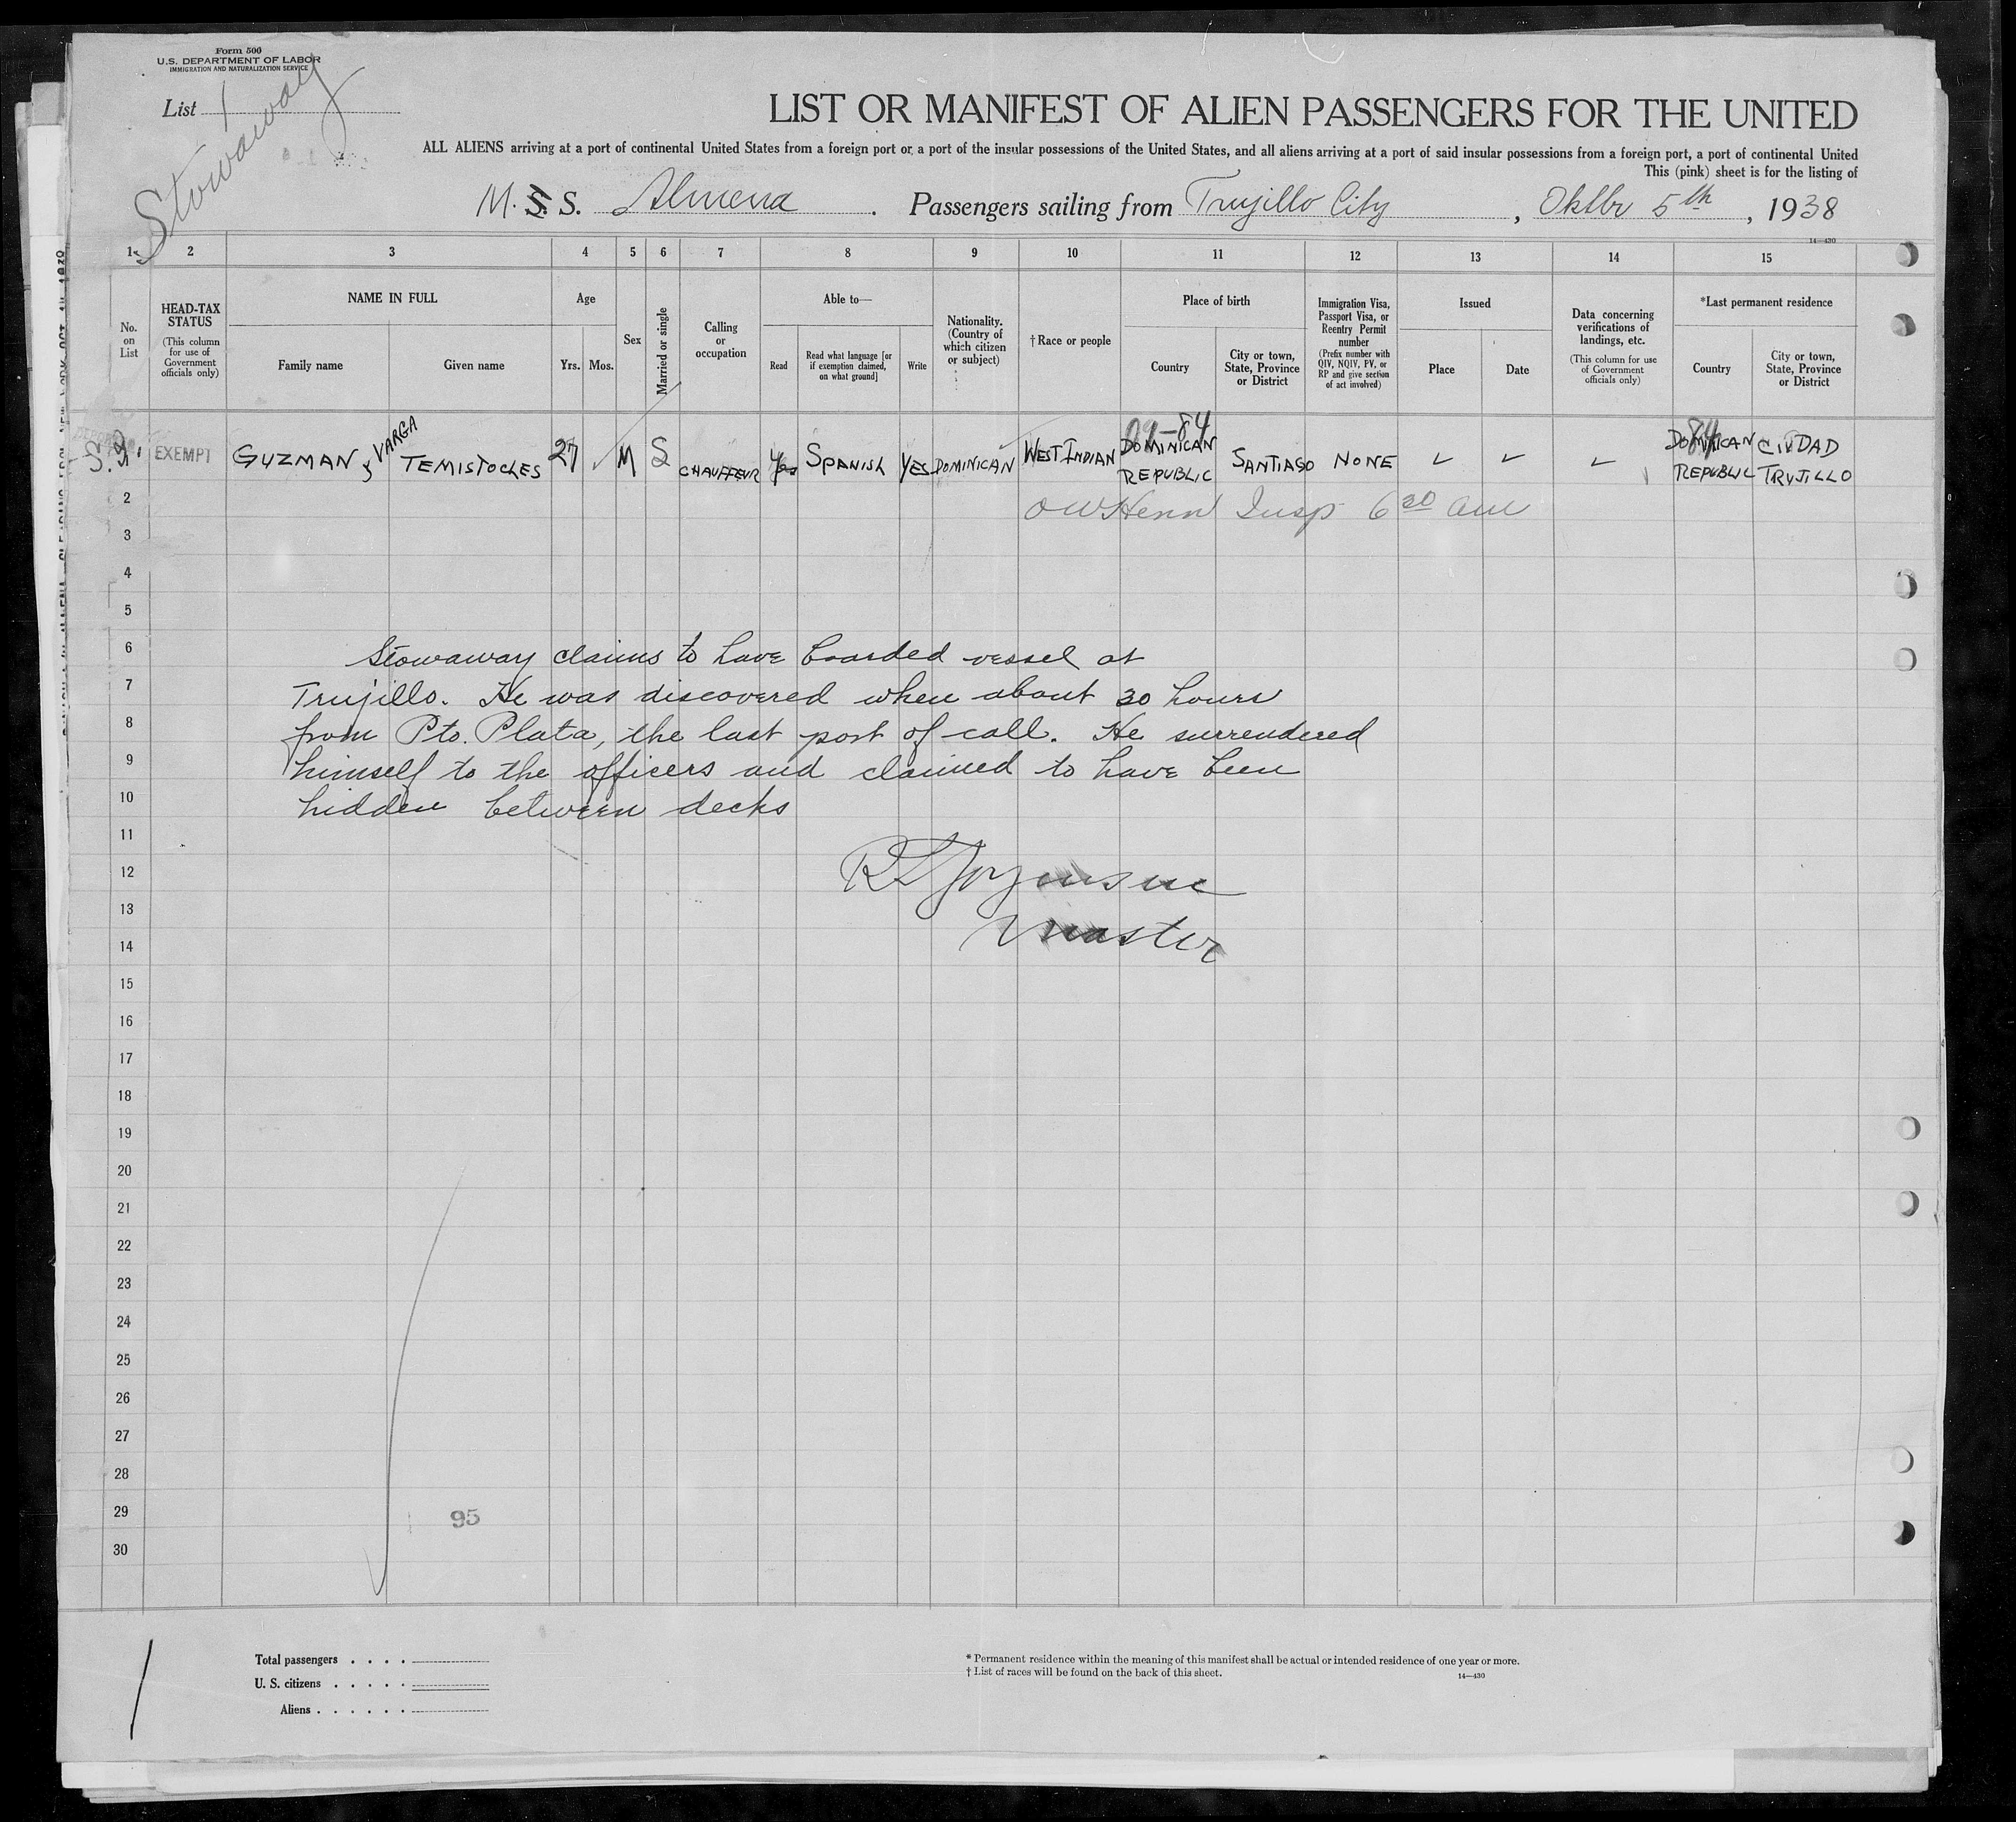 Form 500
U.S. DEPARTMENT OF LABOR
IMMIGRATION AND NATURALIZATION SERVICE
List 1
Stowaway
LIST OR MANIFEST OF ALIEN PASSENGERS FOR THE UNITED
ALL ALIENS arriving at a port of continental United States from a foreign port or a port of the insular possessions of the United States, and all aliens arriving at a port of said insular possessions from a foreign port, a port of continental United
This (pink) sheet is for the listing of
M. S. S. Almena . Passengers sailing from Trujillo City , Oktbr 5th , 1938
14—430
1 2 3 4 5 6 7 8 9 10 11 12 13 14 15
No. on List
HEAD-TAX STATUS
(This column for use of Government officials only)
NAME IN FULL
Family name
Given name
Age
Yrs.
Mos.
Sex
Married or single
Calling or occupation
Able to—
Read
Read what language [or if exemption claimed, on what ground]
Write
Nationality. (Country of which citizen or subject)
† Race or people
Place of birth
Country
City or town, State, Province or District
Immigration Visa, Passport Visa, or Reentry Permit number
(Prefix number with QIV, NQIV, PV, or RP and give section of act involved)
Issued
Place
Date
Data concerning verifications of landings, etc.
(This column for use of Government officials only)
*Last permanent residence
Country
City or town, State, Province or District
EXEMPT GUZMAN y VARGA TEMISTOCLES 27 M S CHAUFFEUR Yes SPANISH YES DOMINICAN WEST INDIAN DOMINICAN REPUBLIC SANTIAGO NONE DOMINICAN REPUBLIC CIUDAD TRUJILLO
84
84
2 Insp 6 30 am
3
4
5
6 Stowaway claims to have boarded vessel at
7 Trujillo. He was discovered when about 30 hours
8 from Pto. Plata, the last port of call. He surrendered
9 himself to the officers and claimed to have been
10 hidden between decks
11
12
13 Master
14
15
16
17
18
19
20
21
22
23
24
25
26
27
28
29 95
30
Total passengers . . . .
U. S. citizens . . . . .
Aliens . . . . . .
* Permanent residence within the meaning of this manifest shall be actual or intended residence of one year or more.
† List of races will be found on the back of this sheet.
14—430